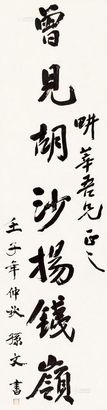 畊華吾兄 正之
曾見胡沙揚鐵嶺
壬子年仲秋 孫文書